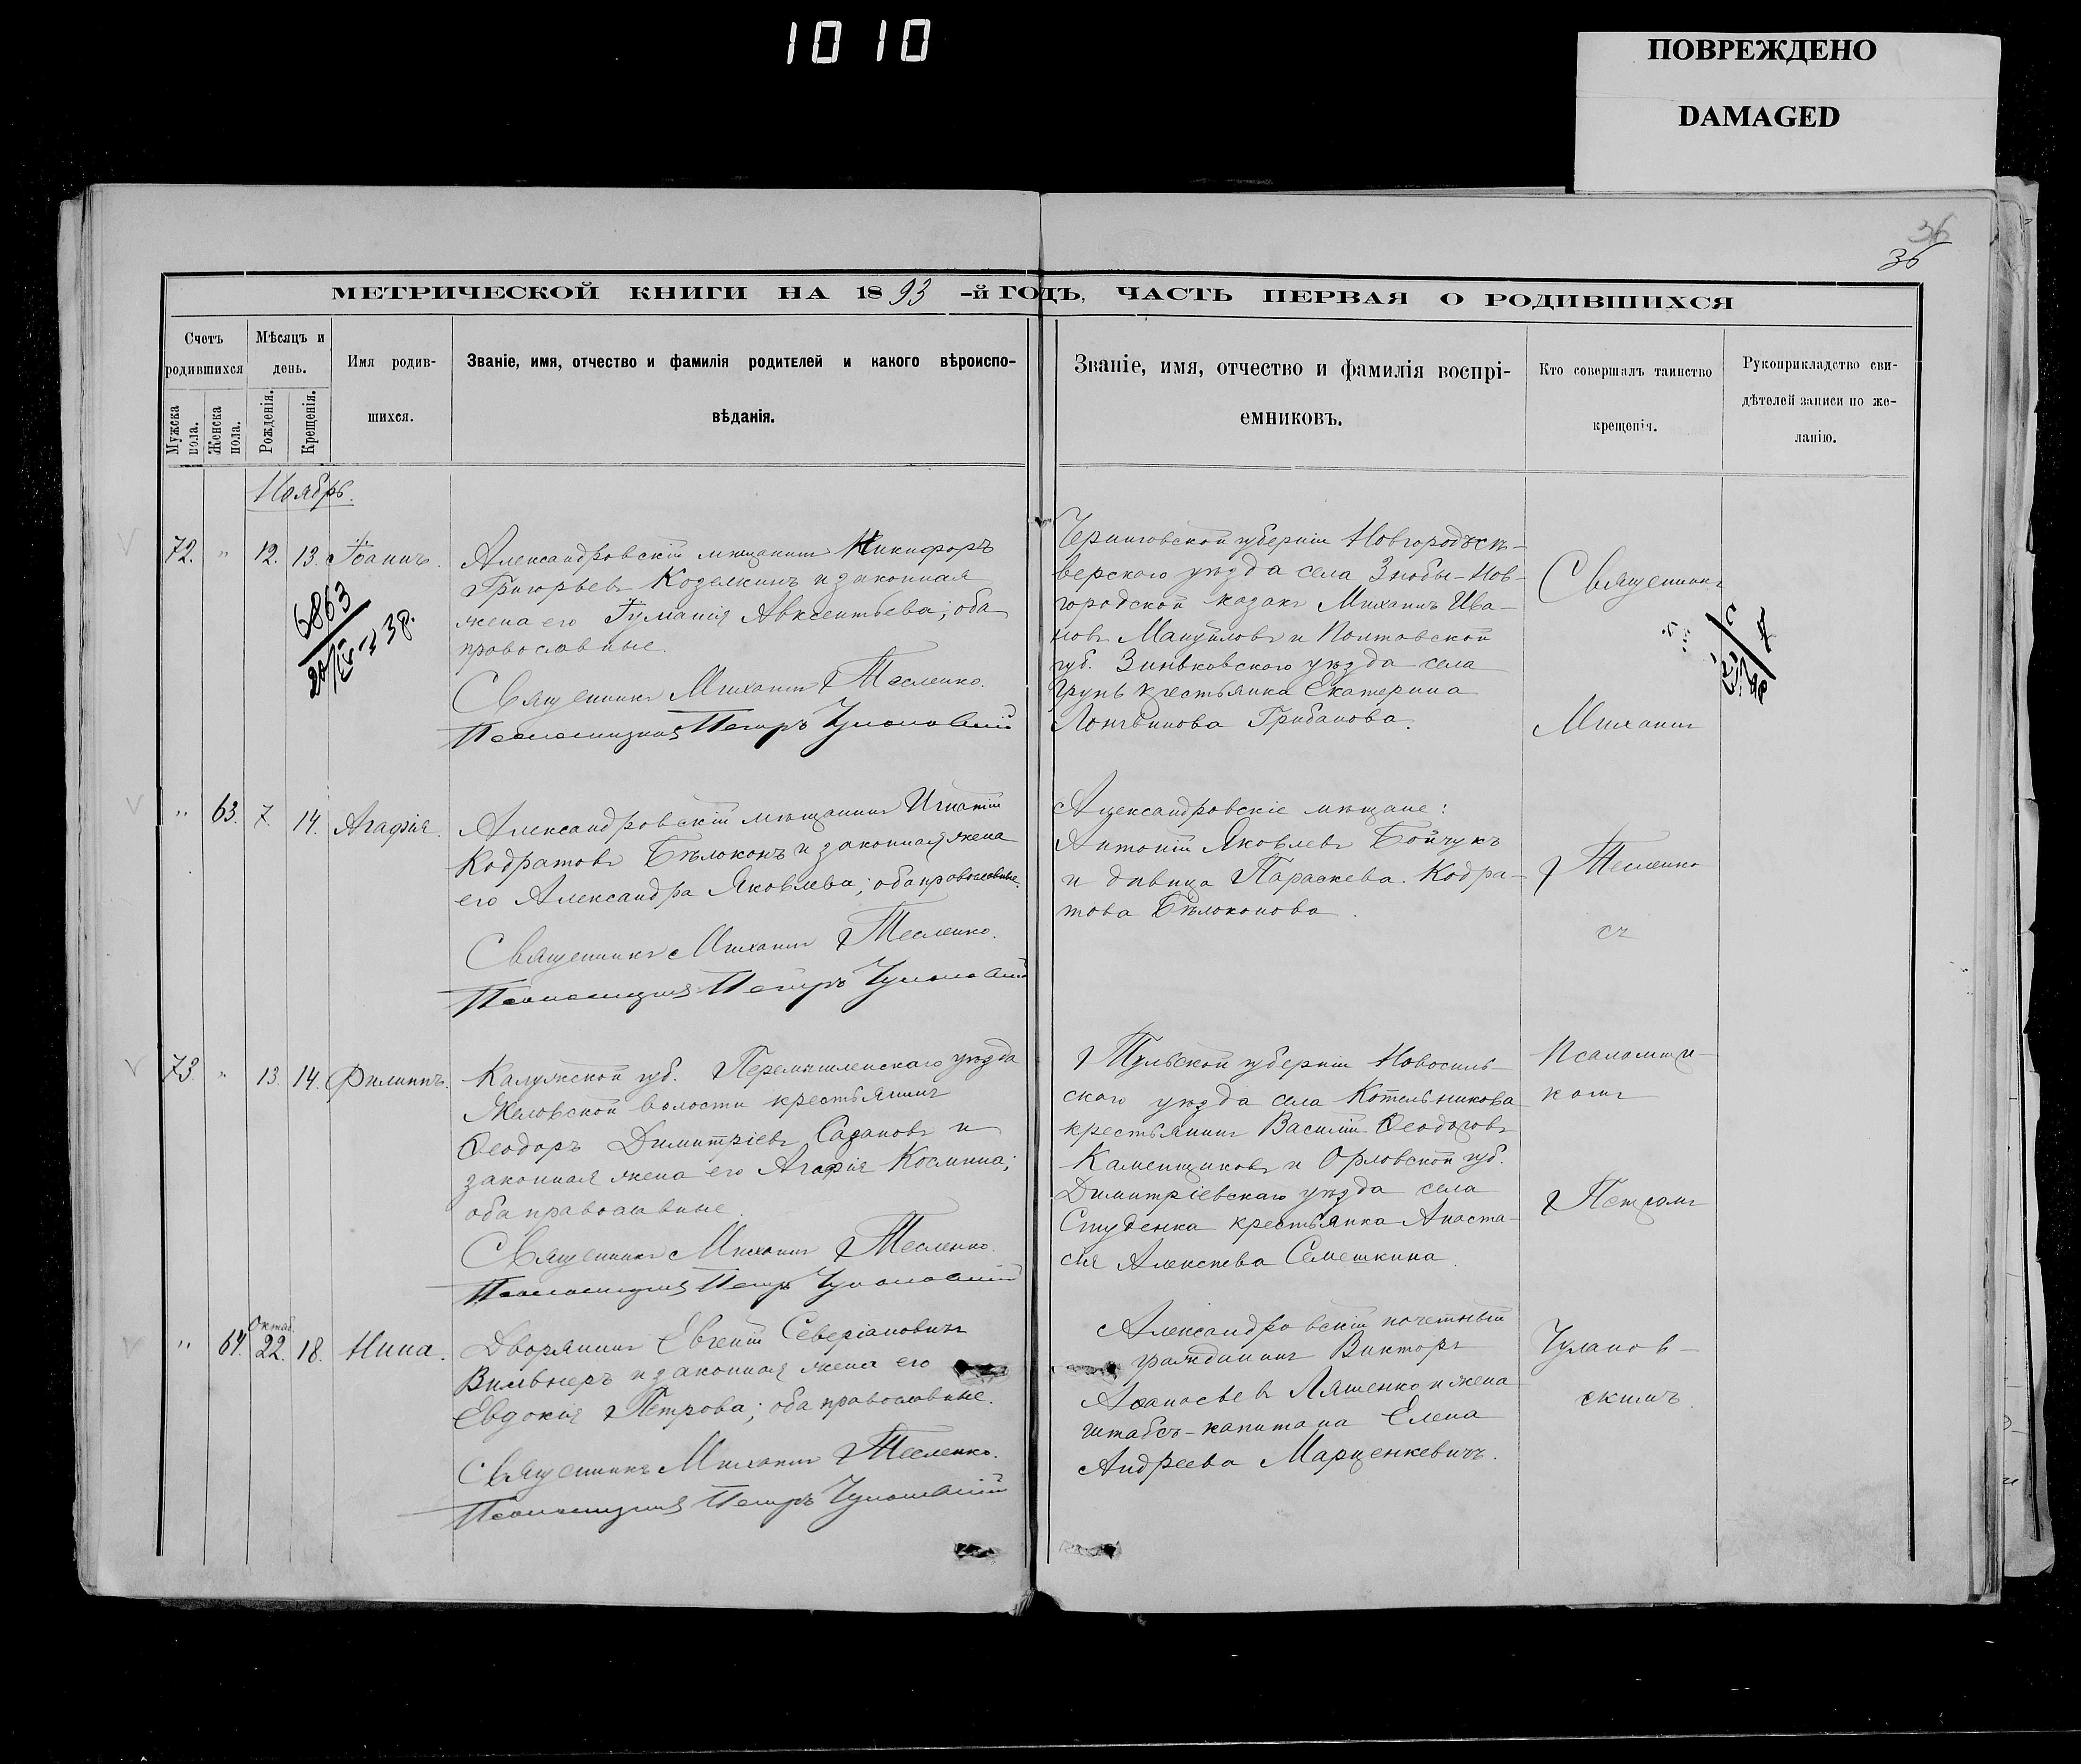 1010
ПОВРЕЖДЕНО
DAMAGED
36
36
МЕТРИЧЕСКОЙ КНИГИ НА 1893 -й ГОДЪ, ЧАСТЬ ПЕРВАЯ О РОДИВШИХСЯ
Счетъ родившихся
Мужска пола.
Женска пола.
Мѣсяцъ и день.
Рожденія.
Крещенія.
Имя родив-
шихся.
Званіе, имя, отчество и фамилія родителей и какого вѣроиспо-
вѣданія.
Званіе, имя, отчество и фамилія воспрі-
емниковъ.
Кто совершалъ таинство
крещенія.
Рукоприкладство сви-
дѣтелей записи по же-
ланію.
Ноябрь.
72. " 12. 13. Іоаннъ.
6863
Александровскій мѣщанинъ Никифоръ
Григорьевъ Козелкинъ и законная
жена его Іуманія Авксентьева; оба
православные.
Священникъ Михаилъ Тесленко.
Псаломщикъ Петръ Чулановскій
Черниговской губерніи Новгородъсѣ-
верскаго уѣзда села Знобы-Нов-
городской казакъ Михаилъ Ива-
новъ Мануйловъ и Полтавской
губ. Зиньковскаго уѣзда села
Грунь крестьянка Екатерина
Логвинова Грибанова.
" 63. 7. 14. Агафія.
Александровскій мѣщанинъ Игнатій
Кодратовъ Бѣлоконъ и законная жена
его Александра Яковлева; оба православные.
Священникъ Михаилъ Тесленко.
Псаломщикъ Петръ Чулановскій
Александровскіе мѣщане:
Антоній Яковлевъ Бойчукъ
и дѣвица Параскева Кодра-
това Бѣлоконова.
73. " 13. 14. Филиппъ.
Калужской губ. Перемышленскаго уѣзда
Желовской волости крестьянинъ
Ѳеодоръ Димитріевъ Сазановъ и
законная жена его Агафія Космина;
оба православные.
Священникъ Михаилъ Тесленко.
Псаломщикъ Петръ Чулановскій
Тульской губерніи Новосиль-
скаго уѣзда села Котельникова
крестьянинъ Василій Ѳеодоровъ
Каменщиковъ и Орловской губ.
Димитріевскаго уѣзда села
Студенка крестьянка Анаста-
сія Алексѣева Семешкина.
" 64. Октяб. 22. 18. Нина.
Дворянинъ Евгеній Северіановичъ
Вильнеръ и законная жена его
Евдокія Петрова; оба православные.
Священникъ Михаилъ Тесленко.
Псаломщикъ Петръ Чулановскій
Александровскій почетный
гражданинъ Викторъ
Аѳанасьевъ Ляшенко и жена
штабсъ-капитана Елена
Андреева Марценкевичъ.
Священникъ
Михаилъ
Тесленко
съ
Псаломщи-
комъ
Петромъ
Чуланов-
скимъ.